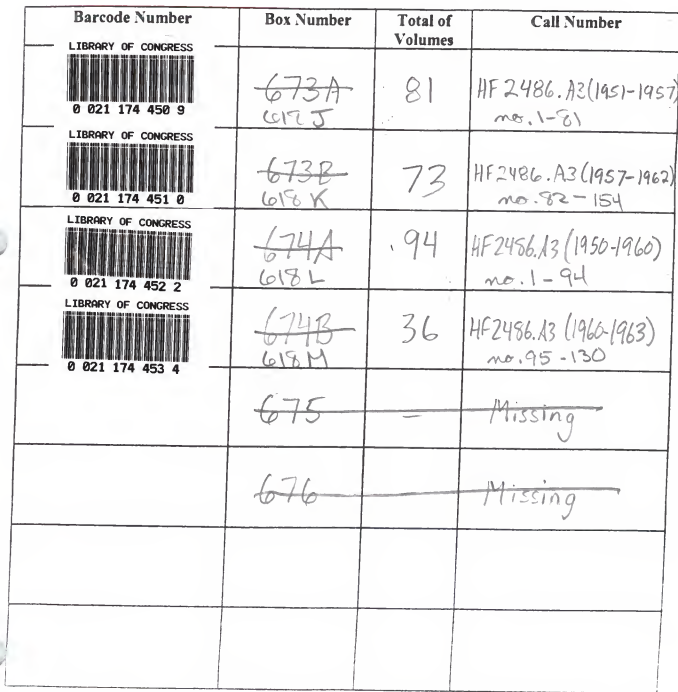 Barcode Number Box Number Total of Volumes Call Number
LIBRARY OF CONGRESS
0 021 174 450 9
673A 81 HF 2486.A3(1951-1957)
617 J no. 1-81
LIBRARY OF CONGRESS
0 021 174 451 0
673B 73 HF2486.A3(1957-1962)
618 K no. 82-154
LIBRARY OF CONGRESS
0 021 174 452 2
674A 94 HF2486.A3 (1950-1960)
618 L no. 1-94
LIBRARY OF CONGRESS
0 021 174 453 4
674B 36 HF2486.A3 (1960-1963)
618 M no. 95-130
675 - Missing
676 Missing